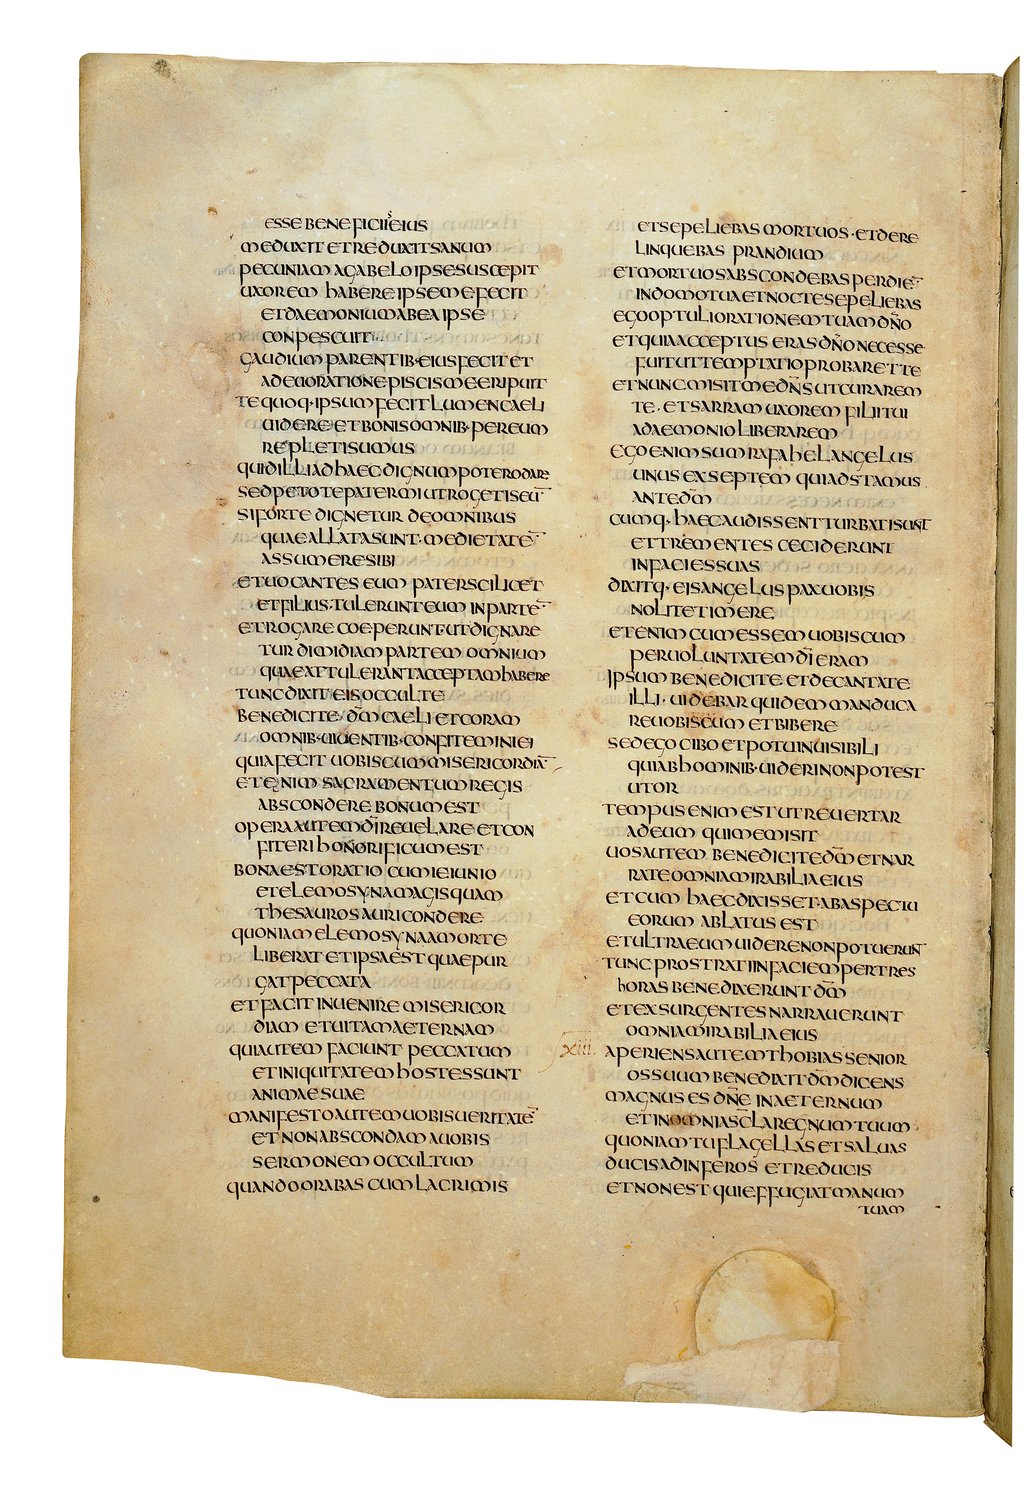 ESSE BENEFICIIS EIUS
ME DUXIT ET REDUXIT SANUM
PECUNIAM A GABELO IPSE SUSCEPIT
UXOREM HABERE IPSE ME FECIT
ET DAEMONIUM AB EA IPSE
CONPESCUIT
GAUDIUM PARENTIB· EIUS FECIT ET
A DEUORATIONE PISCIS ME ERIPUIT
TE QUOQ· IPSUM FECIT LUMEN CAELI
UIDERE ET BONIS OMNIB· PER EUM
REPLETI SUMUS
QUID ILLI AD HAEC DIGNUM POTERO DARE
SED PETO TE PATER MI UT ROGETIS EU̅
SI FORTE DIGNETUR DE OMNIBUS
QUAE ALLATA SUNT· MEDIETATE̅
ASSUMERE SIBI
ET UOCANTES EUM PATER SCILICET
ET FILIUS· TULERUNT EUM IN PARTE̅
ET ROGARE COEPERUNT· UT DIGNARE
TUR DIMIDIAM PARTEM OMNIUM
QUAE ATTULERANT ACCEPTAM HABERE
TUNC DIXIT EIS OCCULTE
BENEDICITE· DM̅ CAELI ET CORAM
OMNIB· UIUENTIB· CONFITEMINI EI
QUIA FECIT UOBISCUM MISERICORDIA̅
ETENIM SACRAMENTUM REGIS
ABSCONDERE BONUM EST
OPERA AUTEM DI̅ REUELARE ET CON
FITERI HONORIFICUM EST
BONA EST ORATIO CUM IEIUNIO
ET ELEMOSYNA MAGIS QUAM
THESAUROS AURI CONDERE
QUONIAM ELEMOSYNA A MORTE
LIBERAT ET IPSA EST QUAE PUR
GAT PECCATA
ET FACIT INUENIRE MISERICOR
DIAM ET UITAM AETERNAM
QUI AUTEM FACIUNT PECCATUM
ET INIQUITATEM HOSTES SUNT
ANIMAE SUAE
MANIFESTO AUTEM UOBIS UERITATE̅
ET NON ABSCONDAM A UOBIS
SERMONEM OCCULTUM
QUANDO ORABAS CUM LACRIMIS
ET SEPELIEBAS MORTUOS· ET DERE
LINQUEBAS PRANDIUM
ET MORTUOS ABSCONDEBAS PER DIE̅
IN DOMO TUA ET NOCTE SEPELIEBAS
EGO OPTULI ORATIONEM TUAM DN̅O
ET QUIA ACCEPTUS ERAS DN̅O NECESSE
FUIT UT TEMPTATIO PROBARET TE
ET NUNC MISIT ME DN̅S UT CURAREM
TE· ET SARRAM UXOREM FILII TUI
A DAEMONIO LIBERAREM
EGO ENIM SUM RAFAHEL ANGELUS
UNUS EX SEPTEM QUI ADSTAMUS
ANTE DM̅
CUMQ· HAEC AUDISSENT TURBATI SUNT
ET TREMENTES CECIDERUNT
IN FACIES SUAS
DIXITQ· EIS ANGELUS PAX UOBIS
NOLITE TIMERE
ETENIM CUM ESSEM UOBISCUM
PER UOLUNTATEM DI̅ ERAM
IPSUM BENEDICITE ET DECANTATE
ILLI· UIDEBAR QUIDEM MANDUCA
RE UOBISCUM ET BIBERE
SED EGO CIBO ET POTU INUISIBILI
QUI AB HOMINIB· UIDERI NON POTEST
UTOR
TEMPUS ENIM EST UT REUERTAR
AD EUM QUI ME MISIT
UOS AUTEM BENEDICITE DM̅ ET NAR
RATE OMNIA MIRABILIA EIUS
ET CUM HAEC DIXISSET· AB ASPECTU
EORUM ABLATUS EST
ET ULTRA EUM UIDERE NON POTUERUNT
TUNC PROSTRATI IN FACIEM PER TRES
HORAS BENEDIXERUNT DM̅
ET EXSURGENTES NARRAUERUNT
OMNIA MIRABILIA EIUS
xiii. APERIENS AUTEM THOBIAS SENIOR
OS SUUM BENEDIXIT DM̅ DICENS
MAGNUS ES DN̅E IN AETERNUM
ET IN OMNIA SC̅LA REGNUM TUUM
QUONIAM TU FLAGELLAS ET SALUAS
DUCIS AD INFEROS ET REDUCIS
ET NON EST QUI EFFUGIAT MANUM
TUAM